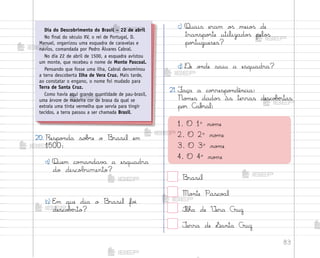 Dia do Descobrimento do Brasil – 22 de abril
No final do século XV, o rei de Portugal, D.
Manuel, organizou uma esquadra de caravelas e
navios, comandada por Pedro Álvares Cabral.
No dia 22 de abril de 1500, a esquadra avistou
um monte, que recebeu o nome de Monte Pascoal.
Pensando que fosse uma ilha, Cabral denominou
a terra descoberta Ilha de Vera Cruz. Mais tarde,
ao constatar o engano, o nome foi mudado para
Terra de Santa Cruz.
Como havia aqui grande quantidade de pau-brasil,
uma árvore de madeira cor de brasa da qual se
extraía uma tinta vermelha que servia para tingir
tecidos, a terra passou a ser chamada Brasil.
20. Responda sobre o Brasil em
1500:
a) Quem comandava a esquadra
do descobrimento?
b) Em que dia o Brasil foi
descoberto?
c) Quais eram os meios de
transporte utilizados pelos
portugueses?
d) De onde saiu a esquadra?
21. Faça a correspondência:
Nomes dados às terras descobertas
por Cabral:
1. O 1º nome
2. O 2º nome
3. O 3º nome
4. O 4º nome
Brasil
Monte Pascoal
Ilha de Vera Cruz
Terra de Santa Cruz
83